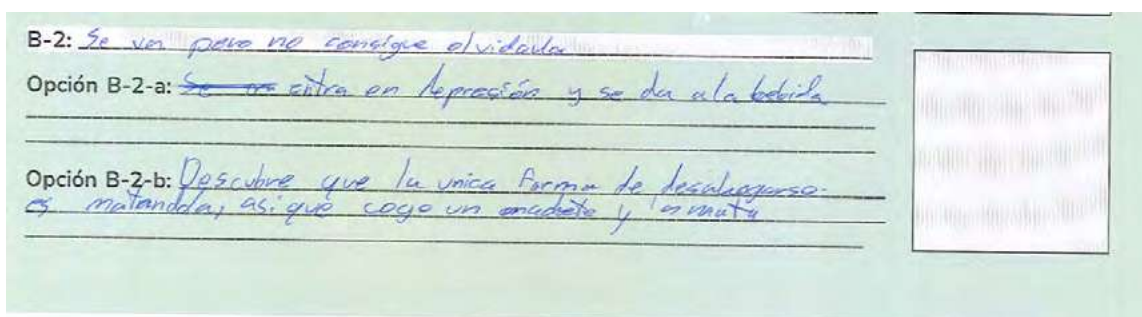 B-2: Se va pero no consigue olvidarla
Opción B-2-a: Se va entra en depresión y se da a la bebida
Opción B-2-b: Descubre que la unica forma de desahogarse
es matandola, asi que coge un machete y la mata